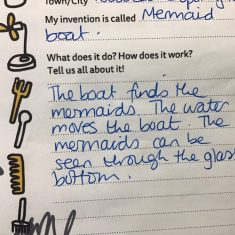 Town/City
My invention is called Mermaid
boat.
What does it do? How does it work?
Tell us all about it!
The boat finds the
mermaids. The water
moves the boat. The
mermaids can be
seen through the glass
bottom.